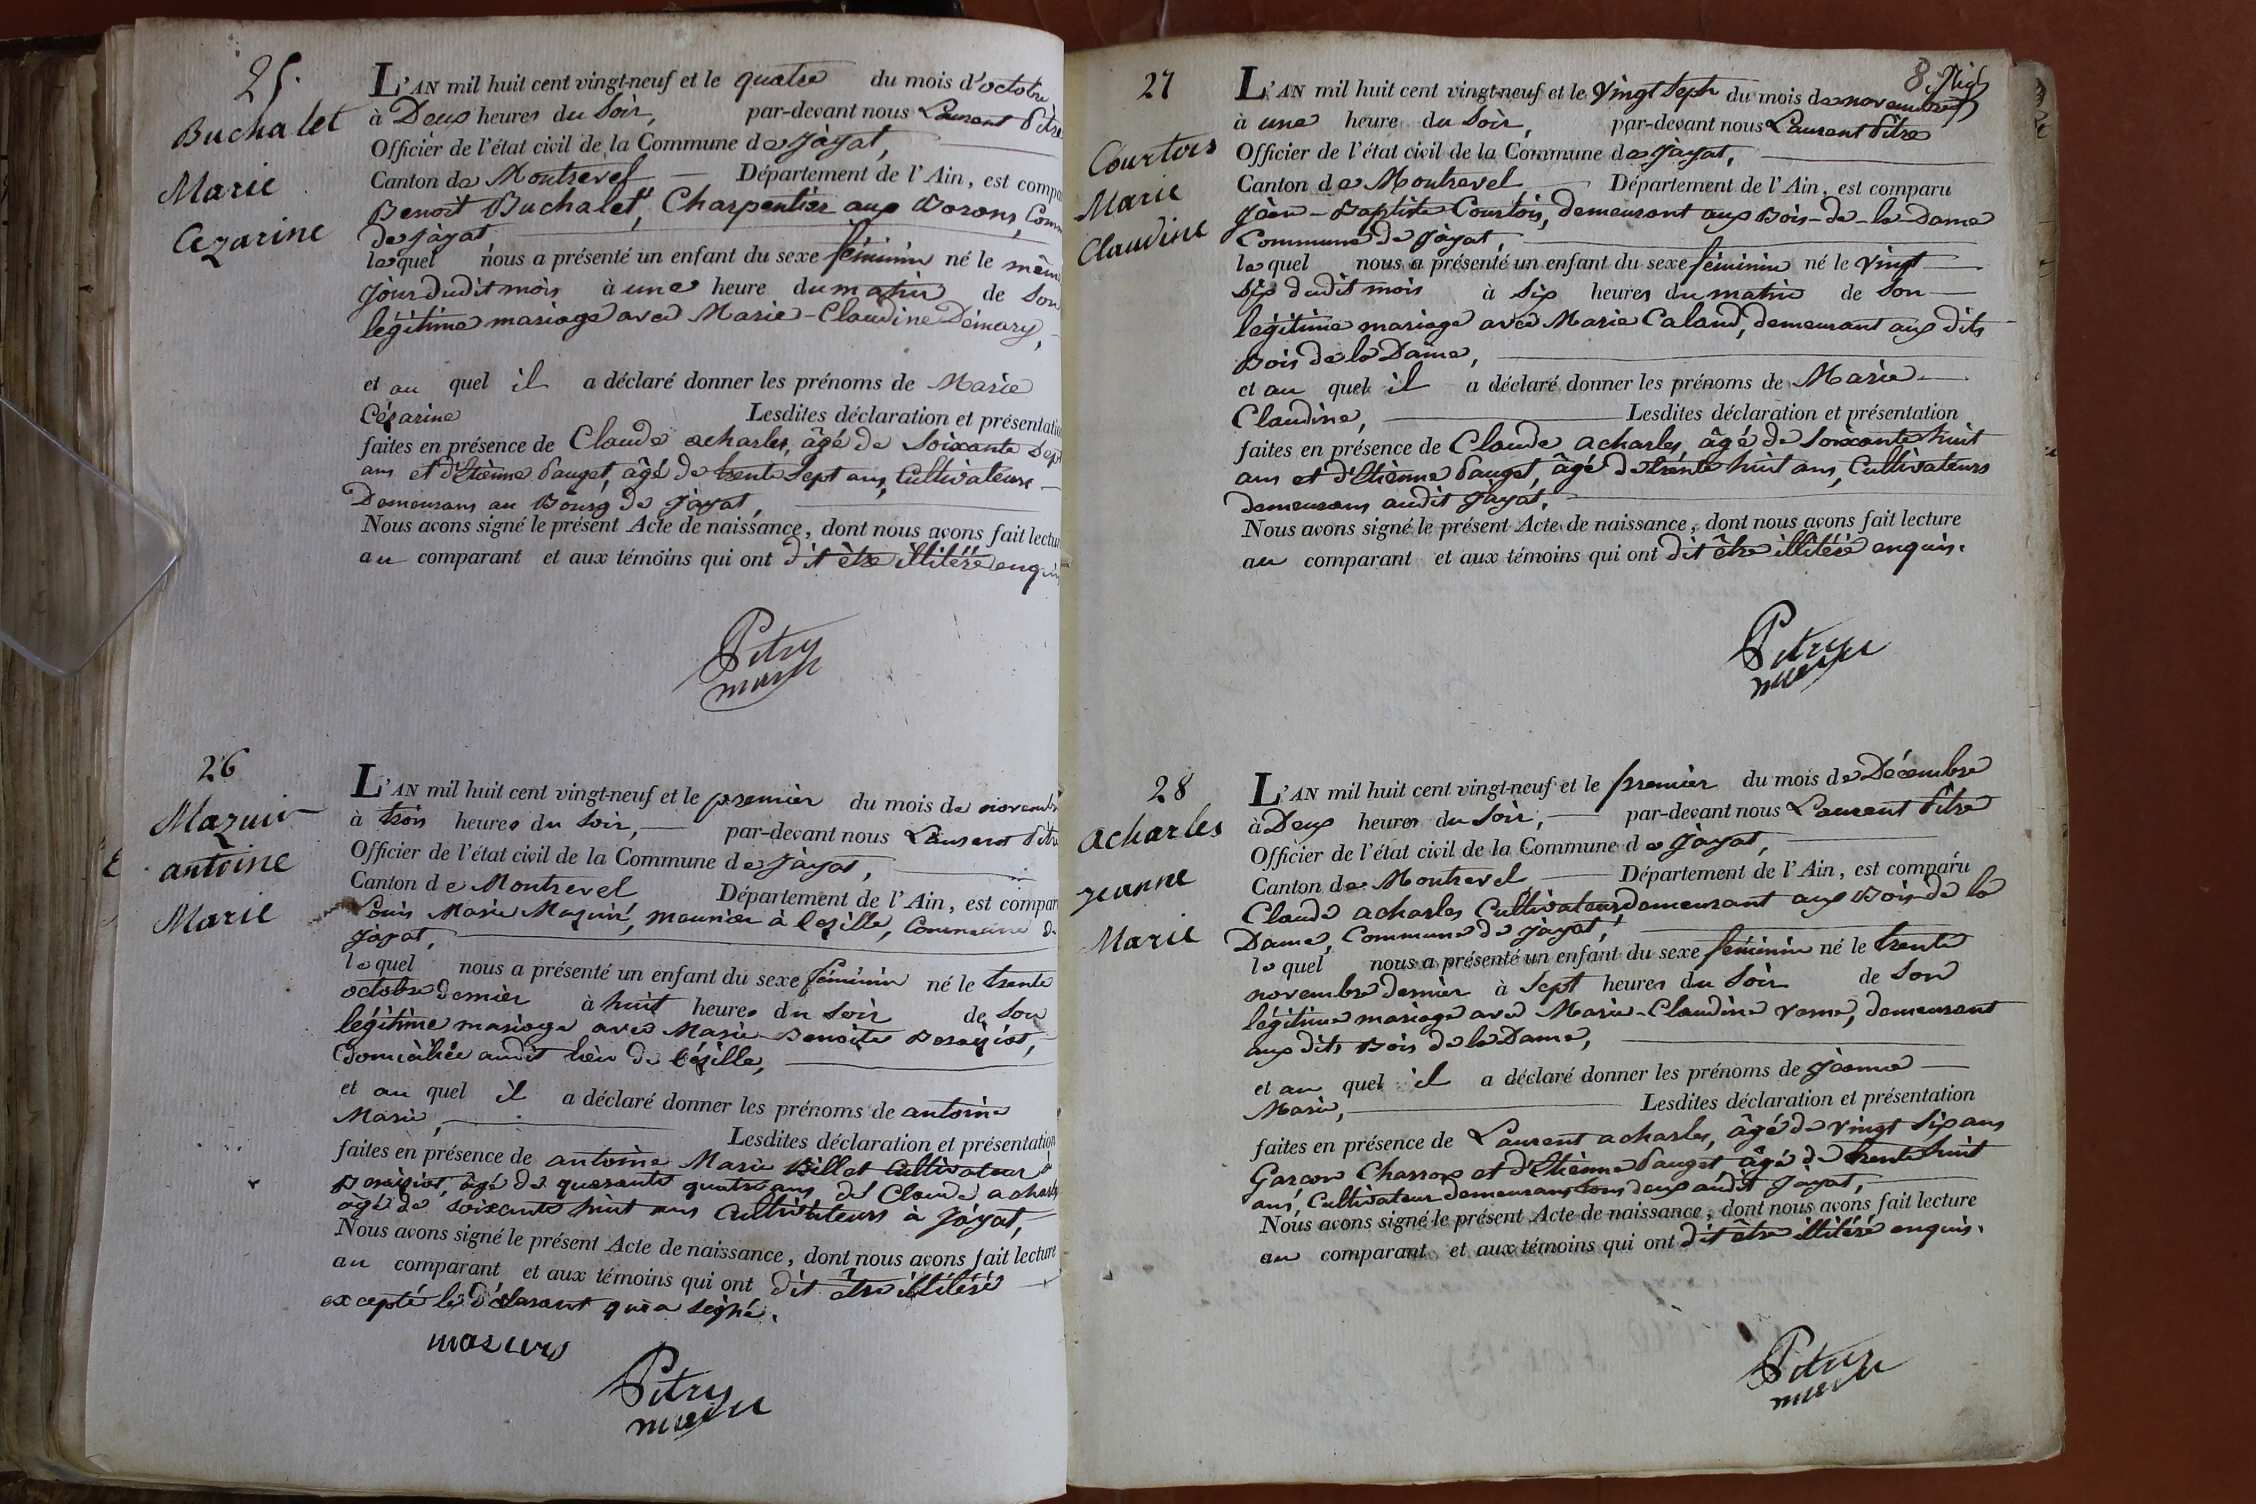 25.
Buchalet
Marie
Cezarine
L'AN mil huit cent vingt-neuf et le quatre du mois d'octobre
à Deux heures du Soir, par-devant nous Laurent Pitre
Officier de l'état civil de la Commune de Jayat,
Canton de Montrevel — Département de l'Ain, est compa
Benoit Buchalet, Charpentier aux Dorons, Comm
de Jayat
lequel nous a présenté un enfant du sexe féminin né le même
Jour dudit mois à une heure du matin de Son
légitime mariage avec Marie-Claudine Démary,
et au quel il a déclaré donner les prénoms de Marie
Cézarine Lesdites déclaration et présentatio
faites en présence de Claude acharles, âgé de Soixante Sept
ans et d'Etienne Pauget, âgé de trente Sept ans, Cultivateurs
Demeurans au Bourg de Jayat,
Nous avons signé le présent Acte de naissance, dont nous avons fait lectur
au comparant et aux témoins qui ont dit être illitéré enquis
Pitre
maire
26
Mazuir
antoine
Marie
L'AN mil huit cent vingt-neuf et le premier du mois de novemb
à trois heures du Soir, — par-devant nous Laurent Pitre
Officier de l'état civil de la Commune de Jayat,
Canton de Montrevel Département de l'Ain, est compar
Louis Marie Mazuir, meunier à Cézille, Commune de
Jayat,
lequel nous a présenté un enfant du sexe féminin né le trente
octobre dernier à huit heures du Soir de Son
légitime mariage avec Marie Benoite
domiciliée audit lieu de Cézille,
et au quel il a déclaré donner les prénoms de antoine
Marie, Lesdites déclaration et présentation
faites en présence de antoine Marie Billet Cultivateur à
âgé de quarante quatre ans, de Claude acharles
âgé de soixante huit ans Cultivateurs à Jayat,
Nous avons signé le présent Acte de naissance, dont nous avons fait lecture
au comparant et aux témoins qui ont dit être illitéré
excepté le déclarant qui a signé.
Pitre
maire
27
Courtois
Marie
Claudine
8
L'AN mil huit cent vingt-neuf et le vingt Sept du mois de novembre
à une heure du Soir, par-devant nous Laurent Pitre
Officier de l'état civil de la Commune de Jayat,
Canton de Montrevel — Département de l'Ain, est comparu
Jean-Baptiste Courtois, demeurant aux Bois-de-la-Dame
Commune de Jayat,
lequel nous a présenté un enfant du sexe féminin né le vingt
Six dudit mois à Six heures du matin de Son
légitime mariage avec Marie Caland, demeurant aux dits
Bois de la Dame,
et au quel il a déclaré donner les prénoms de Marie
Claudine, Lesdites déclaration et présentation
faites en présence de Claude acharles, âgé de Soixante huit
ans et d'Etienne Pauget, âgé de trente huit ans, Cultivateurs
demeurans audit Jayat,
Nous avons signé le présent Acte de naissance, dont nous avons fait lecture
au comparant et aux témoins qui ont dit être illitéré enquis.
Pitre
maire
28
acharles
jeanne
Marie
L'AN mil huit cent vingt-neuf et le premier du mois de Décembre
à Deux heures du Soir, — par-devant nous Laurent Pitre
Officier de l'état civil de la Commune de Jayat,
Canton de Montrevel — Département de l'Ain, est comparu
Claude acharles Cultivateur demeurant aux Bois de la
Dame, Commune de Jayat,
lequel nous a présenté un enfant du sexe féminin né le trente
novembre dernier à Sept heures du Soir de Son
légitime mariage avec Marie-Claudine Verne, demeurant
aux dits Bois de la Dame,
et au quel il a déclaré donner les prénoms de Jeanne
Marie, Lesdites déclaration et présentation
faites en présence de Laurent acharles, âgé de vingt Six ans
Garcon Charron et d'Etienne Pauget âgé de trente huit
ans, Cultivateur demeurans tous deux audit Jayat,
Nous avons signé le présent Acte de naissance, dont nous avons fait lecture
au comparant et aux témoins qui ont dit être illitéré enquis.
Pitre
maire